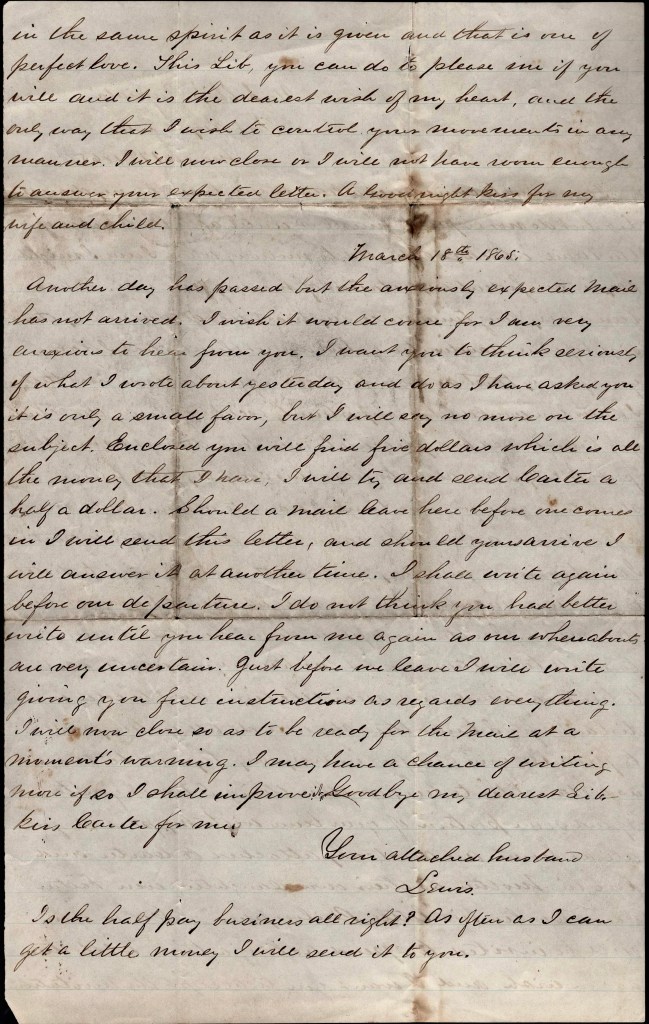 in the same spirit as it is given and that is one of
perfect love. This Lib, you can do to please me if you
will and it is the dearest wish of my heart, and the
only way that I wish to control your movements in any
manner. I will now close or I will not have room enough
to answer your expected letter. A Goodnight kiss for my
wife and child.
March 18th 1865.
Another day has passed but the anxiously expected Mail
has not arrived. I wish it would come for I am very
anxious to hear from you. I want you to think seriously
of what I wrote about yesterday and do as I have asked you
it is only a small favor, but I will say no more on the
subject. Enclosed you will find five dollars which is all
the money that I have, I will try and send Carter a
half a dollar. Should a mail leave here before one comes
in I will send this letter, and should yours arrive I
will answer it at another time. I shall write again
before our departure. I do not think you had better
write until you hear from me again as our whereabouts
are very uncertain. Just before we leave I will write
giving you full instructions as regards everything.
I will now close so as to be ready for the Mail at a
moment's warning. I may have a chance of writing
more if so I shall improve it. Goodbye my dearest Lib
kiss Carter for me
Your attached husband
Lewis.
Is the half pay business all right? As often as I can
get a little money I will send it to you.